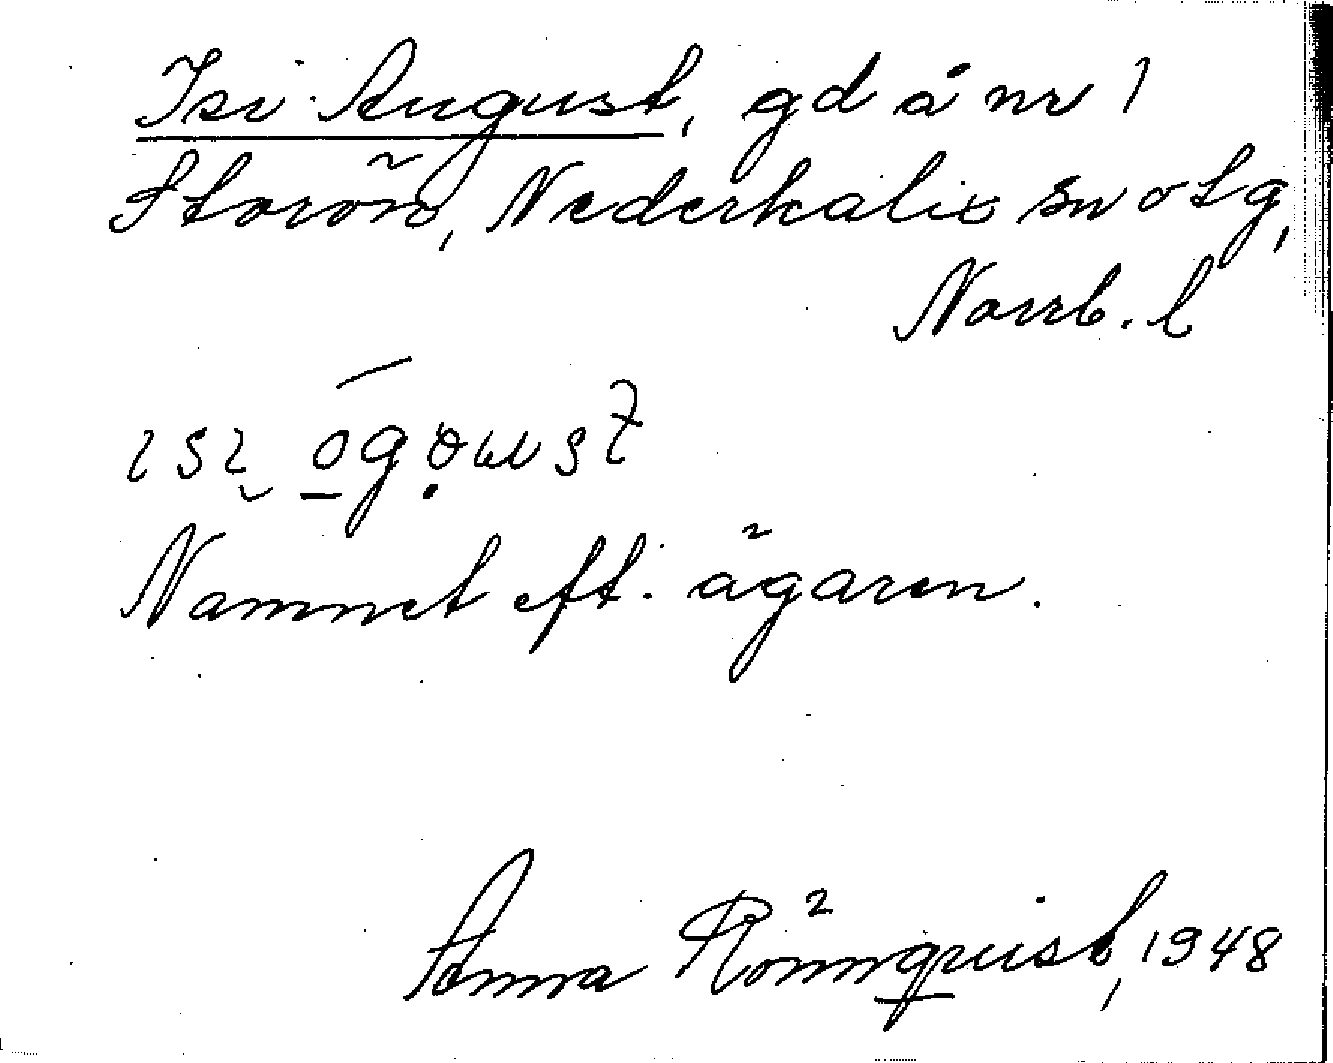 Isi August, gd å nr 1
Storön, Nederkalix sn o tg,
Norrb. l
Namnet eft. ägaren.
Anna Rönnqvist, 1948